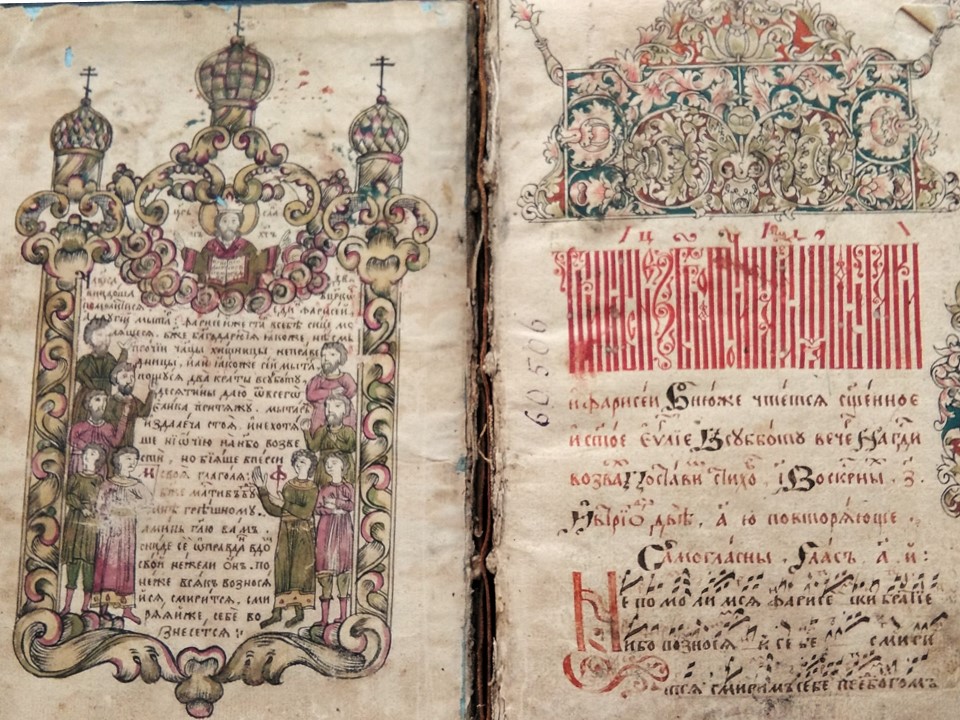 ЦРЬ СЛА
ІС ХТЪ
Чл҃вка два
внидоша въ цркѡ
помолитися. Єдін фарисей,
а другіи мытарь. Фарисей же ста в себѣ сице мо
ляшеся. Бже благодарю тя, яко нѣсмь
прочіи чл҃цы хищницы неправе
дницы, или якоже сій мыта.
пощуся два краты в субботу.
десятины даю ѿ всего
елика притяжу. мытарь
издалеча стоя, и не хотя
ше ни ѡчію на нбо возве
сти, но біяше в перси
своя глаголя:
бже млтивъ бу
ди мнѣ грѣшному.
аминь глю вамъ.
сниде се ѡправдан в до
свой нежели онъ. по
неже всякъ вознося
йся смирится. сми
ряяйже себе во
знесется:
605506
и фарисеи Внюже чтется сщенное
и стое Еуліе. В субботу вечера На гди
возвахъ Пославим стихо, і. Воскрны, з.
И в тріѡди, два, а ю повторяюще.
Самогласны. Гласъ. а. й:
Не по мо ли мся фарисе ски братіе
И бо возносяй се бе смири
тся смиримъ себе пребогомъ